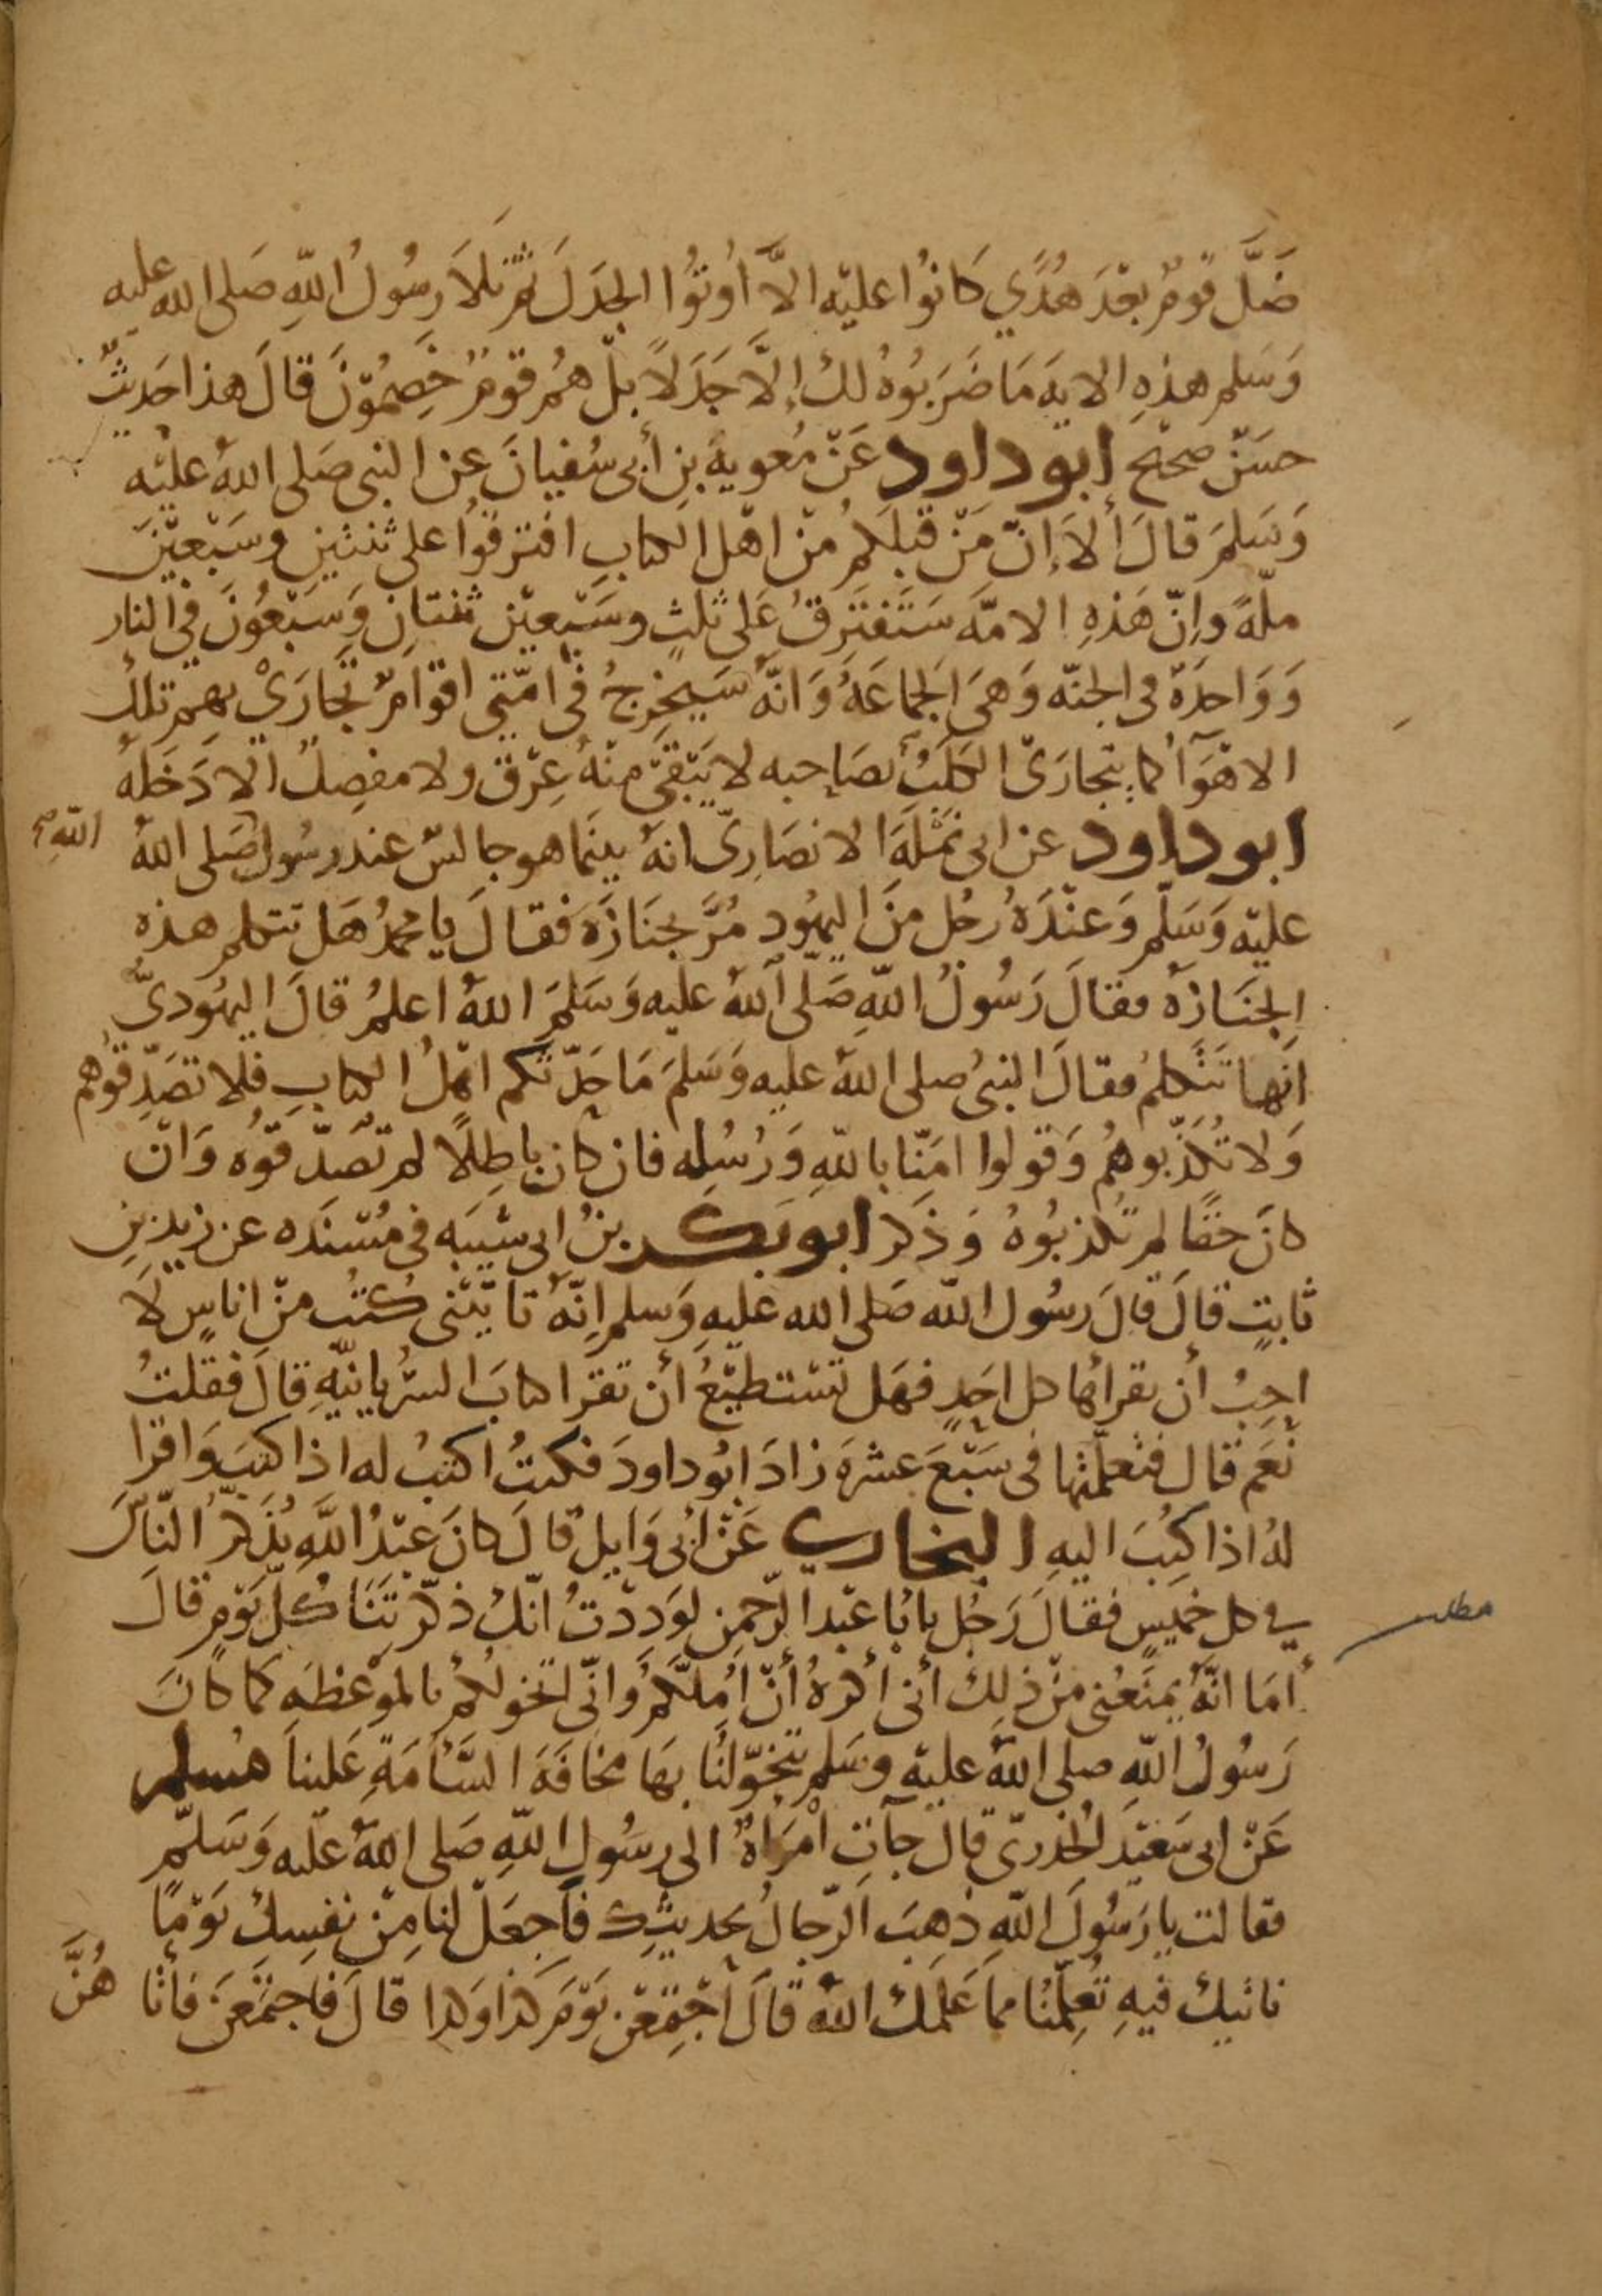 ضَلَّ قومٌ بعْدَ هُدًي كَانوُا عليْه الاَّ اُوتُوا الجدَلَ ثمّ تلاَ رسُولُ اللّهِ صَلى الله عليه
وَسَلم هذهِ الايه مَا ضَرَبُوهُ لك إلاَّ جَدَلاً بلْ همُ قومٌ خَصِمُوْنَ قالَ هذا حَديثٌ
حسَنٌ صحيح ابو داود عَنْ مُعوية بنِ أبى سُفيانَ عن النبى صَلى اللهُ عليْه
وَسَلمَ قالَ ألاَ إنّ مَنْ قبلكمُ منْ اهْل الكتابِ افترقوُا على ثنتينِ وسَبْعيْنَ
ملّةً وإنّ هَذهِ الامّه سَتَفتَرِقُ عَلى ثلثٍ وسَبْعيْن ثنتانِ وَسَبْعُونَ في النار
وَوَاحدَة فى الجنّه وَهىَ الجماعَةُ وَانّهُ سَيخرجُ فى امّتى اقوَامٌ تجارَيْ بهِمْ تلك
الاهْوَآُ كما يتجارَىْ الكلَبُ بصَاحبه لا يَبْقىَ منْهُ عِرْق ولا مفصِلٌ الا دَخَلهُ
ابو داود عن ابى نمْلَةَ الانصَارىّ انهُ بينَما هو جالسٌ عند رسُول صَلى اللهُ
اللّهِ صح
عليْه وَسَلّم وَعنْدَهُ رجُل منَ اليهُود مُرَّ بجنَازَة فقالَ يا محمدُ هَل تتكلم هذه
الجنَازة فقالَ رَسُولُ اللّهِ صَلى اللهُ عليه وَسَلمَ اللهُ اعلمُ قالَ اليهُودىُّ
انها تتَكلمُ فقالَ النبىُ صلى اللهُ عليه وَسَلمَ مَا حَدّثكم اهْلُ الكتابِ فلا تصَدِّقوُهم
وَلا تُكذّبوهُم وَقولوا امَنّا باللّهِ وَرُسُلِه فان كان باطِلًا لم تصَدّقوُه وَانْ
كانَ حقًا لم تُكذبُوهُ وَذَكر ابو بكر بنُ ابى شَيبَه فى مُسْنَدَه عن زيد بنِ
ثابتٍ قالَ قالَ رسُول اللّه صَلى الله عليهِ وَسلم إنّهُ تاتيْنى كُتُب منْ اناسٍ لاَ
احِبُ أن يقرأها كل احَدٍ فهَل تسْتطيْعُ أن تقرَا كتابَ السُّريانيّهِ قالَ فقلتُ
نعَم قال فتعلمّتها فى سَبْعَ عشرةَ زادَ ابُوداودَ فكنتُ اكتبُ له اذا كتبَ وَاقرا
لهُ اذا كُتِبَ اليهِ البخاري عَنْ ابى وَايلٍ قالَ كانَ عبْدُ اللّهِ يُذَكرُ النّاسَ
في كل خميسٍ فقالَ رَجُل يا ابَا عبْد الرّحمنِ لوَددْتُ انّكَ ذكّرتَنَا كُلّ يَوْمٍ قالَ
مطلب
أمَا انّهُ يمنَعُنى منْ ذلك أنى أكرهُ أنْ اُمِلّكمُ وَانّى اتخولكمُ بالموْعظه كما كانَ
رَسُولُ اللّهِ صلى اللهُ عليْه وسَلم يتخوّلنا بهَا مخافَةَ السَّآمَةِ عَلينا مسلم
عَنْ ابى سَعيْد الخدرىّ قالَ جآتِ امْرَاةٌ الى رسُولِ اللّهِ صَلى اللهُ عليه وَسَلّم
فقالت يا رَسُولَ اللّهِ ذهبَ الرّجالُ بحديثِك فآجعَلْ لنا مِنْ نفسِكَ يَوْمًا
ناتيكَ فيهِ تُعِلّمُنا مما عَلمَكَ اللهُ قالَ اجْتمِعْن يَوْمَ كذا وَكذا قالَ فاجتمَعْنَ فأتا هُنَّ